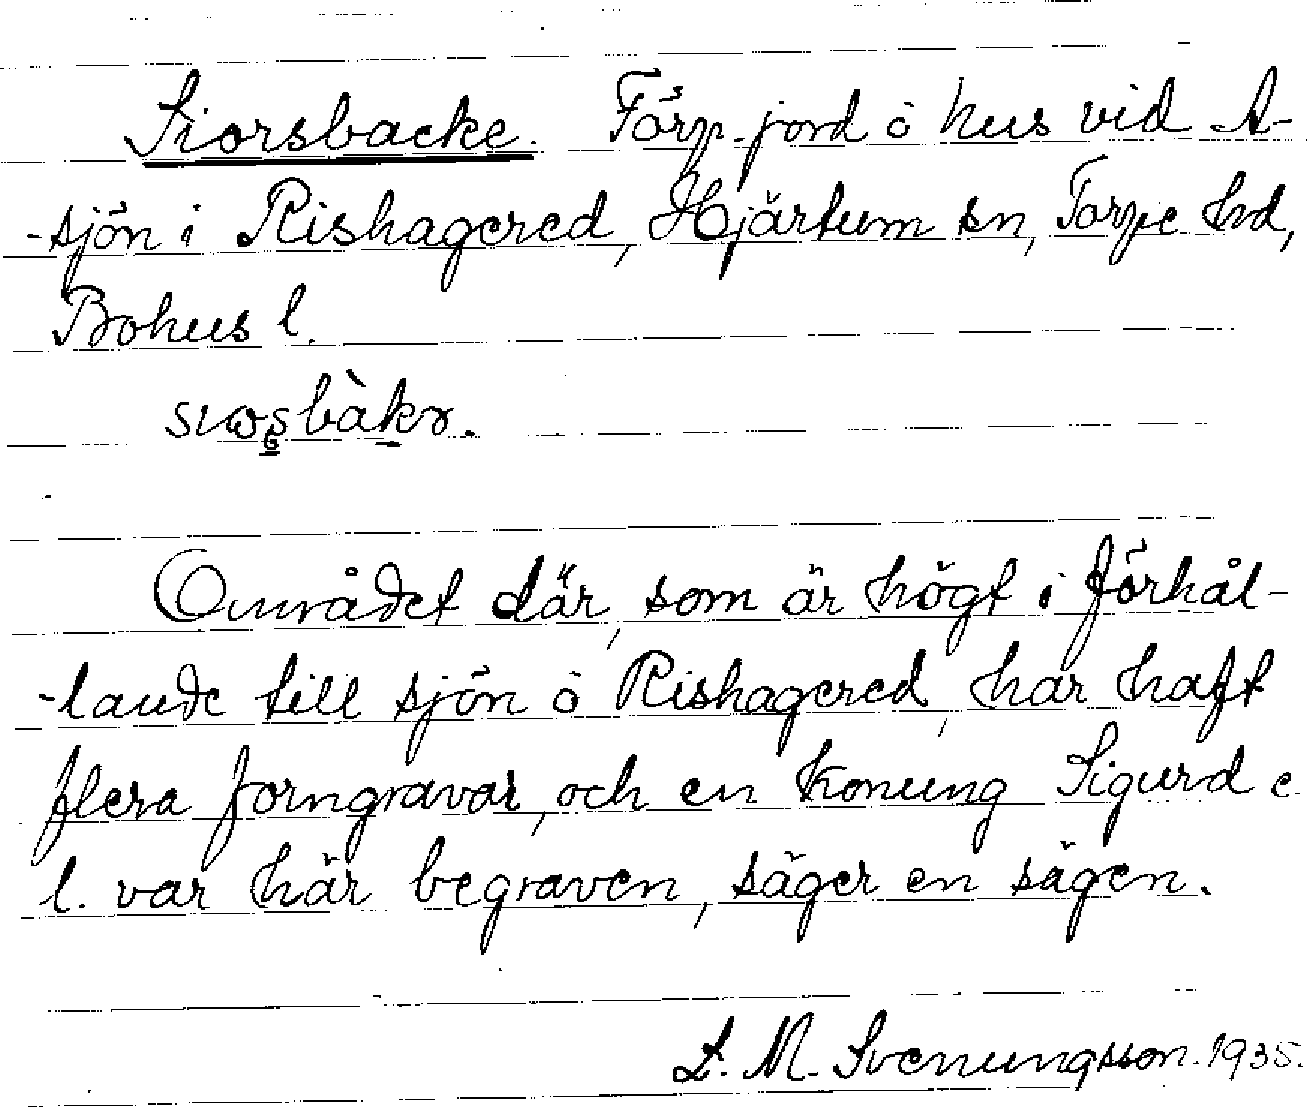 Siorsbacke. Förp. jord ö hus vid A-
-sjön i Rishagered, Hjärtum sn, Torpe hd,
Bohus l.

Området där, som är högt i förhål-
-lande till sjön ö Rishagered, har haft
flera forngravar, och en konung Sigurd e
l. var här begraven, säger en sägen.
L. M. Svenungsson. 1935.